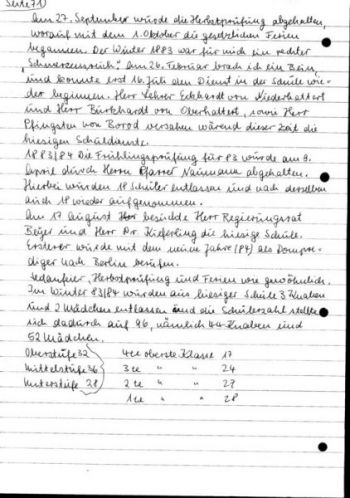 Seite 71)
Am 27. September wurde die Herbstprüfung abgehalten,
worauf mit dem 1. Oktober die gesetzlichen Ferien
begannen. Der Winter 1883 war für mich ein rechter
"Schmerzensreich". Am 26. Februar brach ich ein Bein
und konnte erst 16. Juli den Dienst in der Schule wie-
der beginnen. Herr Lehrer Eckhardt von Niederhattert
und Herr Burkhardt von Oberhattert, sowie Herr
Pfingsten von Borod versahen während dieser Zeit die
hiesigen Schuldienste.
1883/84 Die Frühlingsprüfung für 83 wurde am 9.
April durch Herrn Pfarrer Naumann abgehalten.
Hierbei wurden 18 Schüler entlassen und nach derselben
auch 18 wieder aufgenommen.
Am 17 August besuchte Herr Regierungsrat
Beyer und Herr Dr. Kieferling die hiesige Schule.
Ersterer wurde mit dem neuen Jahre (84) als Dompre-
diger nach Berlin berufen.
Sedanfeier, Herbstprüfung und Ferien wie gewöhnlich.
Im Winter 83/84 wurden aus hiesiger Schule 3 Knaben
und 2 Mädchen entlassen und die Schülerzahl stellte
sich dadurch auf 96, nämlich 44 Knaben und
52 Mädchen.
Oberstufe 32 4te oberste Klasse 17
Mittelstufe 36 3te " " 24
Unterstufe 28 2te " " 27
1te " " 28